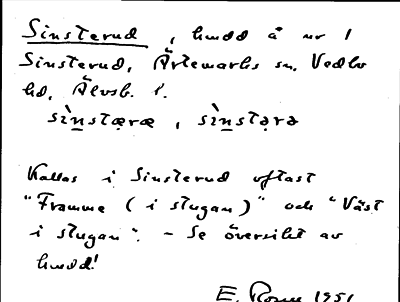 Sinsterud, hmdd å nr 1
Sinsterud, Ärtemarks sn, Vedbo
hd, Älvsb. l.
sìnstæræ, sìnstərə
Kallas i Sinsterud oftast
"Framme (i stugan)" och "Väst
i stugan". - Se översikt av
hmdd!
E. 1951